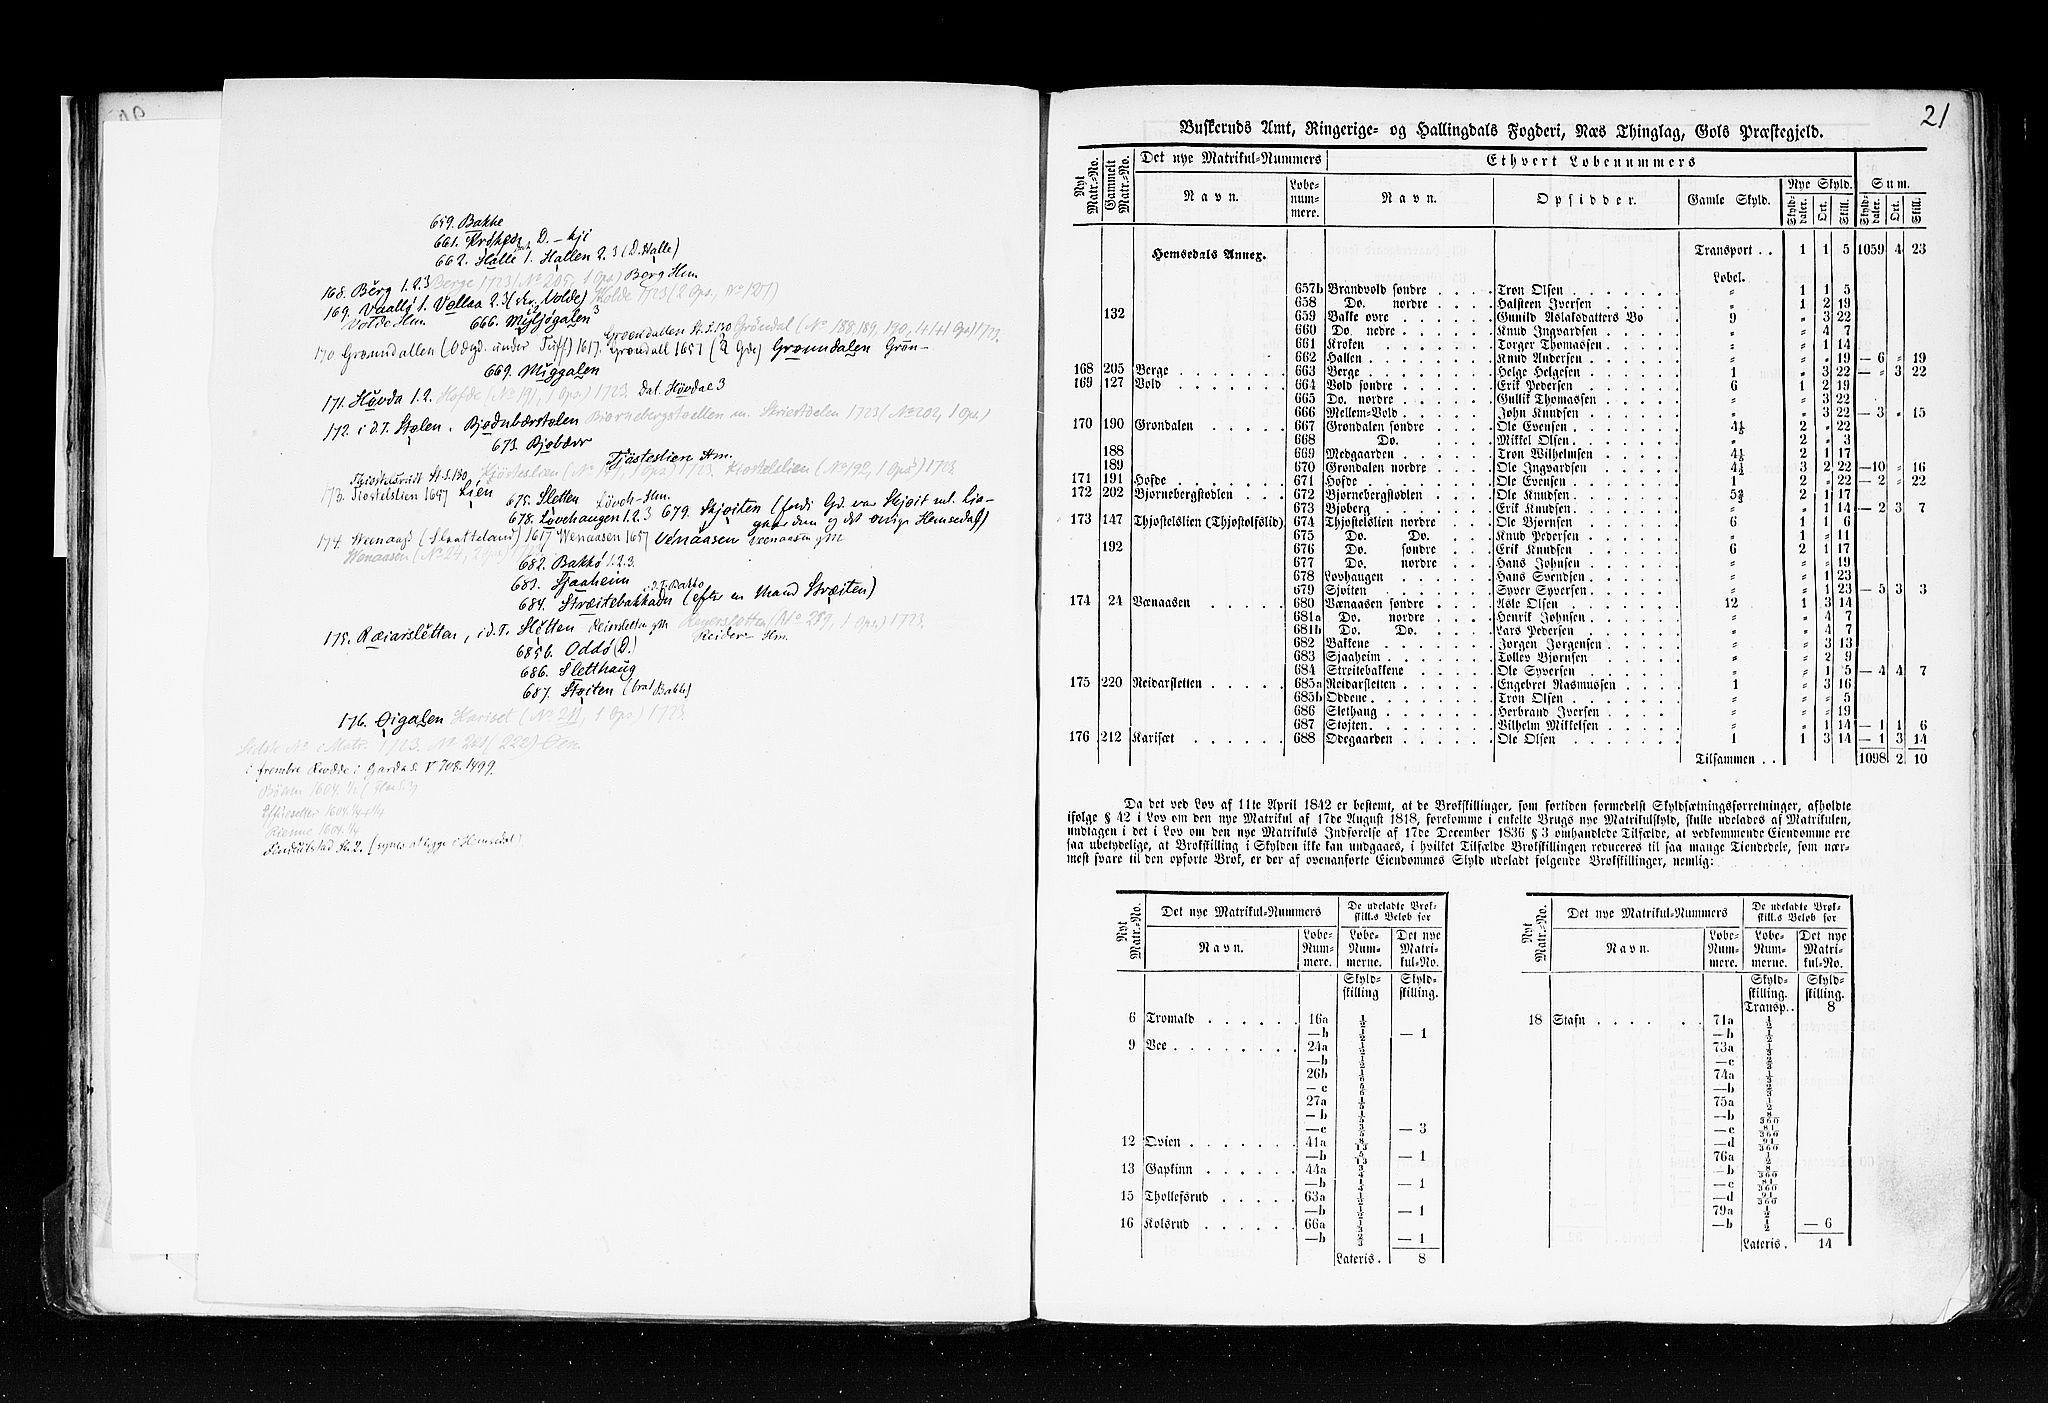 659. Bakke
661. Krøken D. - kji
662. Halle 1. Hallen 2.3 (D. Halle)
168. Berg 1.2.3 Berge 1723 (No 205, 1 Ops.) Berg Hm.
169. Vaallø 1. Vollaa 2.3 (skr. Volde) Holde 1723 (2 Ops., No 127)
Volde Hm. 666. Miljøgalen 3
Groendallen St. S. 130 Grøndal (No 188, 189, 190, 1/4 1/4 1 Ops) 1723.
170 Grøndallen (Ødegd. under Tuff) 1617. Grøndall 1657 (2 Gde) Grøndalen Grøn-
669. Miggalen
171. Høvda 1.2. Hofde (No 191, 1 Ops.) 1723. Dat. Høvdae 3
172. i d. T. Stølen. Bjødnbærstølen Biørnebergstoellen m. 1723 (No 202, 1 Ops.)
673. Bjøbærr
Tjøsteslien Hm.
St. S. 130 Kjøsteslien 1723. Kiostelslien (No 192, 1 Ops) 1723.
173. Tiostelslien 1647 Lien
675. Sletten Løveh- Hm.
678. Løvehaugen 1.2.3 679. Skjøiten (fordi Gd. var Skjøit ml. Lia-
gardene og det øvrige Hemsedal)
174. Weenaas (Slaatteland) 1617 Wenaasen 1657 Venaasen Veenaasen gM
Wenaasen (No 24, 2 Ops)
682. Bakkø 1.2.3.
683. Sjaaheim
i d. T. Bakko
684. Stræitebakkadn (efter en Mand Stræiten)
175. Ræiarsletten, i d. T. Sletten Reiersletten gM Reyersletten (No 289, 1 Ops.) 1723.
Reider- Hm.
685b. Oddø (D.)
686. Sletthaug
687. Støiten (brat Bakke)
176. Øigalen Kariset (No 211, 1 Ops.) 1723.
Sidste No i Matr. 1723. No 221 (222) Øen.
i frembre Rudde i Gardas. V 708. 1499.
1604. 1/2
1604. 1/4 + 1/4
1604. 1/4
St. 2. (synes at ligge i Hemsedal)
21
Buskeruds Amt, Ringerige- og Hallingdals Fogderi, Næs Thinglag, Gols Præstegjeld.
Nyt Matr.-No. Gammelt Matr.-No. Det nye Matrikul-Nummers Ethvert Løbenummers
Navn. Løbe-num-mere. Navn. Opsidder. Gamle Skyld. Nye Skyld. Sum.
Skyld-daler. Ort. Skill. Skyld-daler. Ort. Skill.
Hemsedals Annex. Transport . . 1 1 5 1059 4 23
Løbel.
657b Brandvold søndre Tron Olsen " 1 1 5
658 Do. nordre Halsteen Iversen " 1 2 19
132 659 Bakke øvre Gunild Aslaksdatters Bo 9 " 3 22
660 Do. nedre Knud Ingvardsen " " 4 7
661 Kroken Torger Thomassen " " 1 14
662 Hallen Knud Andersen " " " 19 — 6 " 19
168 205 Berge 663 Berge Helge Helgesen 1 " 3 22 — " 3 22
169 127 Vold 664 Vold søndre Erik Pedersen 6 1 2 19
665 Do. nordre Gullik Thomassen " " 3 22
666 Mellem-Vold John Knudsen " " 3 22 — 3 " 15
170 190 Grøndalen 667 Grøndalen søndre Ole Evensen 4½ 2 " 22
668 Do. Mikkel Olsen " 2 " 3
188 669 Medgaarden Tron Wilhelmsen 4½ 2 1 17
189 670 Grøndalen nordre Ole Ingvardsen 4½ 3 2 22 —10 " 16
171 191 Høfde 671 Høfde Ole Evensen 1 2 " 22 — 2 " 22
172 202 Bjørnebergstødlen 672 Bjørnebergstødlen Ole Knudsen 2 1 17
673 Bjøberg Erik Knudsen " " 1 14 — 2 3 7
173 147 Thjøstelslien (Thjøstolfslid) 674 Thjøstelslien nordre Ole Bjørnsen 6 1 1 6
675 Do. Do. Knud Pedersen " 1 " 11
192 676 Do. søndre Erik Knudsen 6 2 1 17
677 Do. nordre Hans Johnsen " " " 19
678 Løvhaugen Hans Svendsen " " 1 23
679 Sjøiten Syver Syversen " " 1 23 — 5 3 3
174 24 Vænaasen 680 Vænaasen søndre Asle Olsen 12 1 3 14
681a Do. nordre Henrik Johnsen " " 4 7
681b Do. Do. Lars Pedersen " " 4 7
682 Bakkene Jørgen Jørgensen " " 3 13
683 Sjaaheim Tollev Bjørnsen " " 2 9
684 Streitebakkene Ole Syversen " " 1 5 — 4 4 7
175 220 Reidarsletten 685a Reidarsletten Engebret Rasmussen 1 " 3 16
685b Oddene Tron Olsen " " " 5
686 Slethaug Herbrand Iversen " " " 19
687 Støjten Vilhelm Mikkelsen " " 1 14 — 1 1 6
176 212 Karisæt 688 Ødegaarden Ole Olsen 1 1 3 14 — 1 3 14
Tilsammen . . 1098 2 10
Da det ved Lov af 11te April 1842 er bestemt, at de Brøkskillinger, som fortiden formedelst Skyldsætningsforretninger, afholdte
ifølge § 42 i Lov om den nye Matrikul af 17de August 1818, forekomme i enkelte Brugs nye Matrikulskyld, skulle udelades af Matrikulen,
undtagen i det i Lov om den nye Matrikuls Indførelse af 17de December 1836 § 3 omhandlede Tilfælde, at vedkommende Eiendomme ere
saa ubetydelige, at Brøkskilling i Skylden ikke kan undgaaes, i hvilket Tilfælde Brøkskillingen reduceres til saa mange Tiendedele, som nær-
mest svare til den opførte Brøk, er der af ovenanførte Eiendommes Skyld udeladt følgende Brøkskillinger, nemlig:
Nyt Matr.-No. Det nye Matrikul-Nummers De udeladte Brøk-skill.s Beløb for
Navn. Løbe-Num-mere. Løbe-Num-merne. Det nye Matri-kul-No.
Skyld-skilling Skyld-skilling.
6 Tromald 16a ½
—b ½ — 1
9 Vee 24a ½
—b ½
26b 1/6
—c 5/6
27a 1/5
—b 1/5
—c 3/5 — 3
12 Øvien 41a 8/13
—b 5/13 — 1
13 Gapkinn 44a ¾
—b ¼ — 1
15 Thollefsrud 63a ½
—b ½ — 1
16 Kolsrud 66a 1/3
—b 2/3 — 1
Lateris. 8
Nyt Matr.-No. Det nye Matrikul-Nummers De udeladte Brøk-skill.s Beløb for
Navn. Løbe-Num-mere. Løbe-Num-merne. Det nye Matri-kul-No.
Skyld-skilling. Skyld-skilling.
Transp. . 8
18 Stafn 71a ½
—b ½
73a 1/3
—c 2/3
74a 1/3
—b 2/3
75a ½
—b 8/360
—c 81/360
—d 91/360
76a ½
—b 8/360
—c 81/360
—d 91/360
79a ½
—b ½ — 6
Lateris. 14